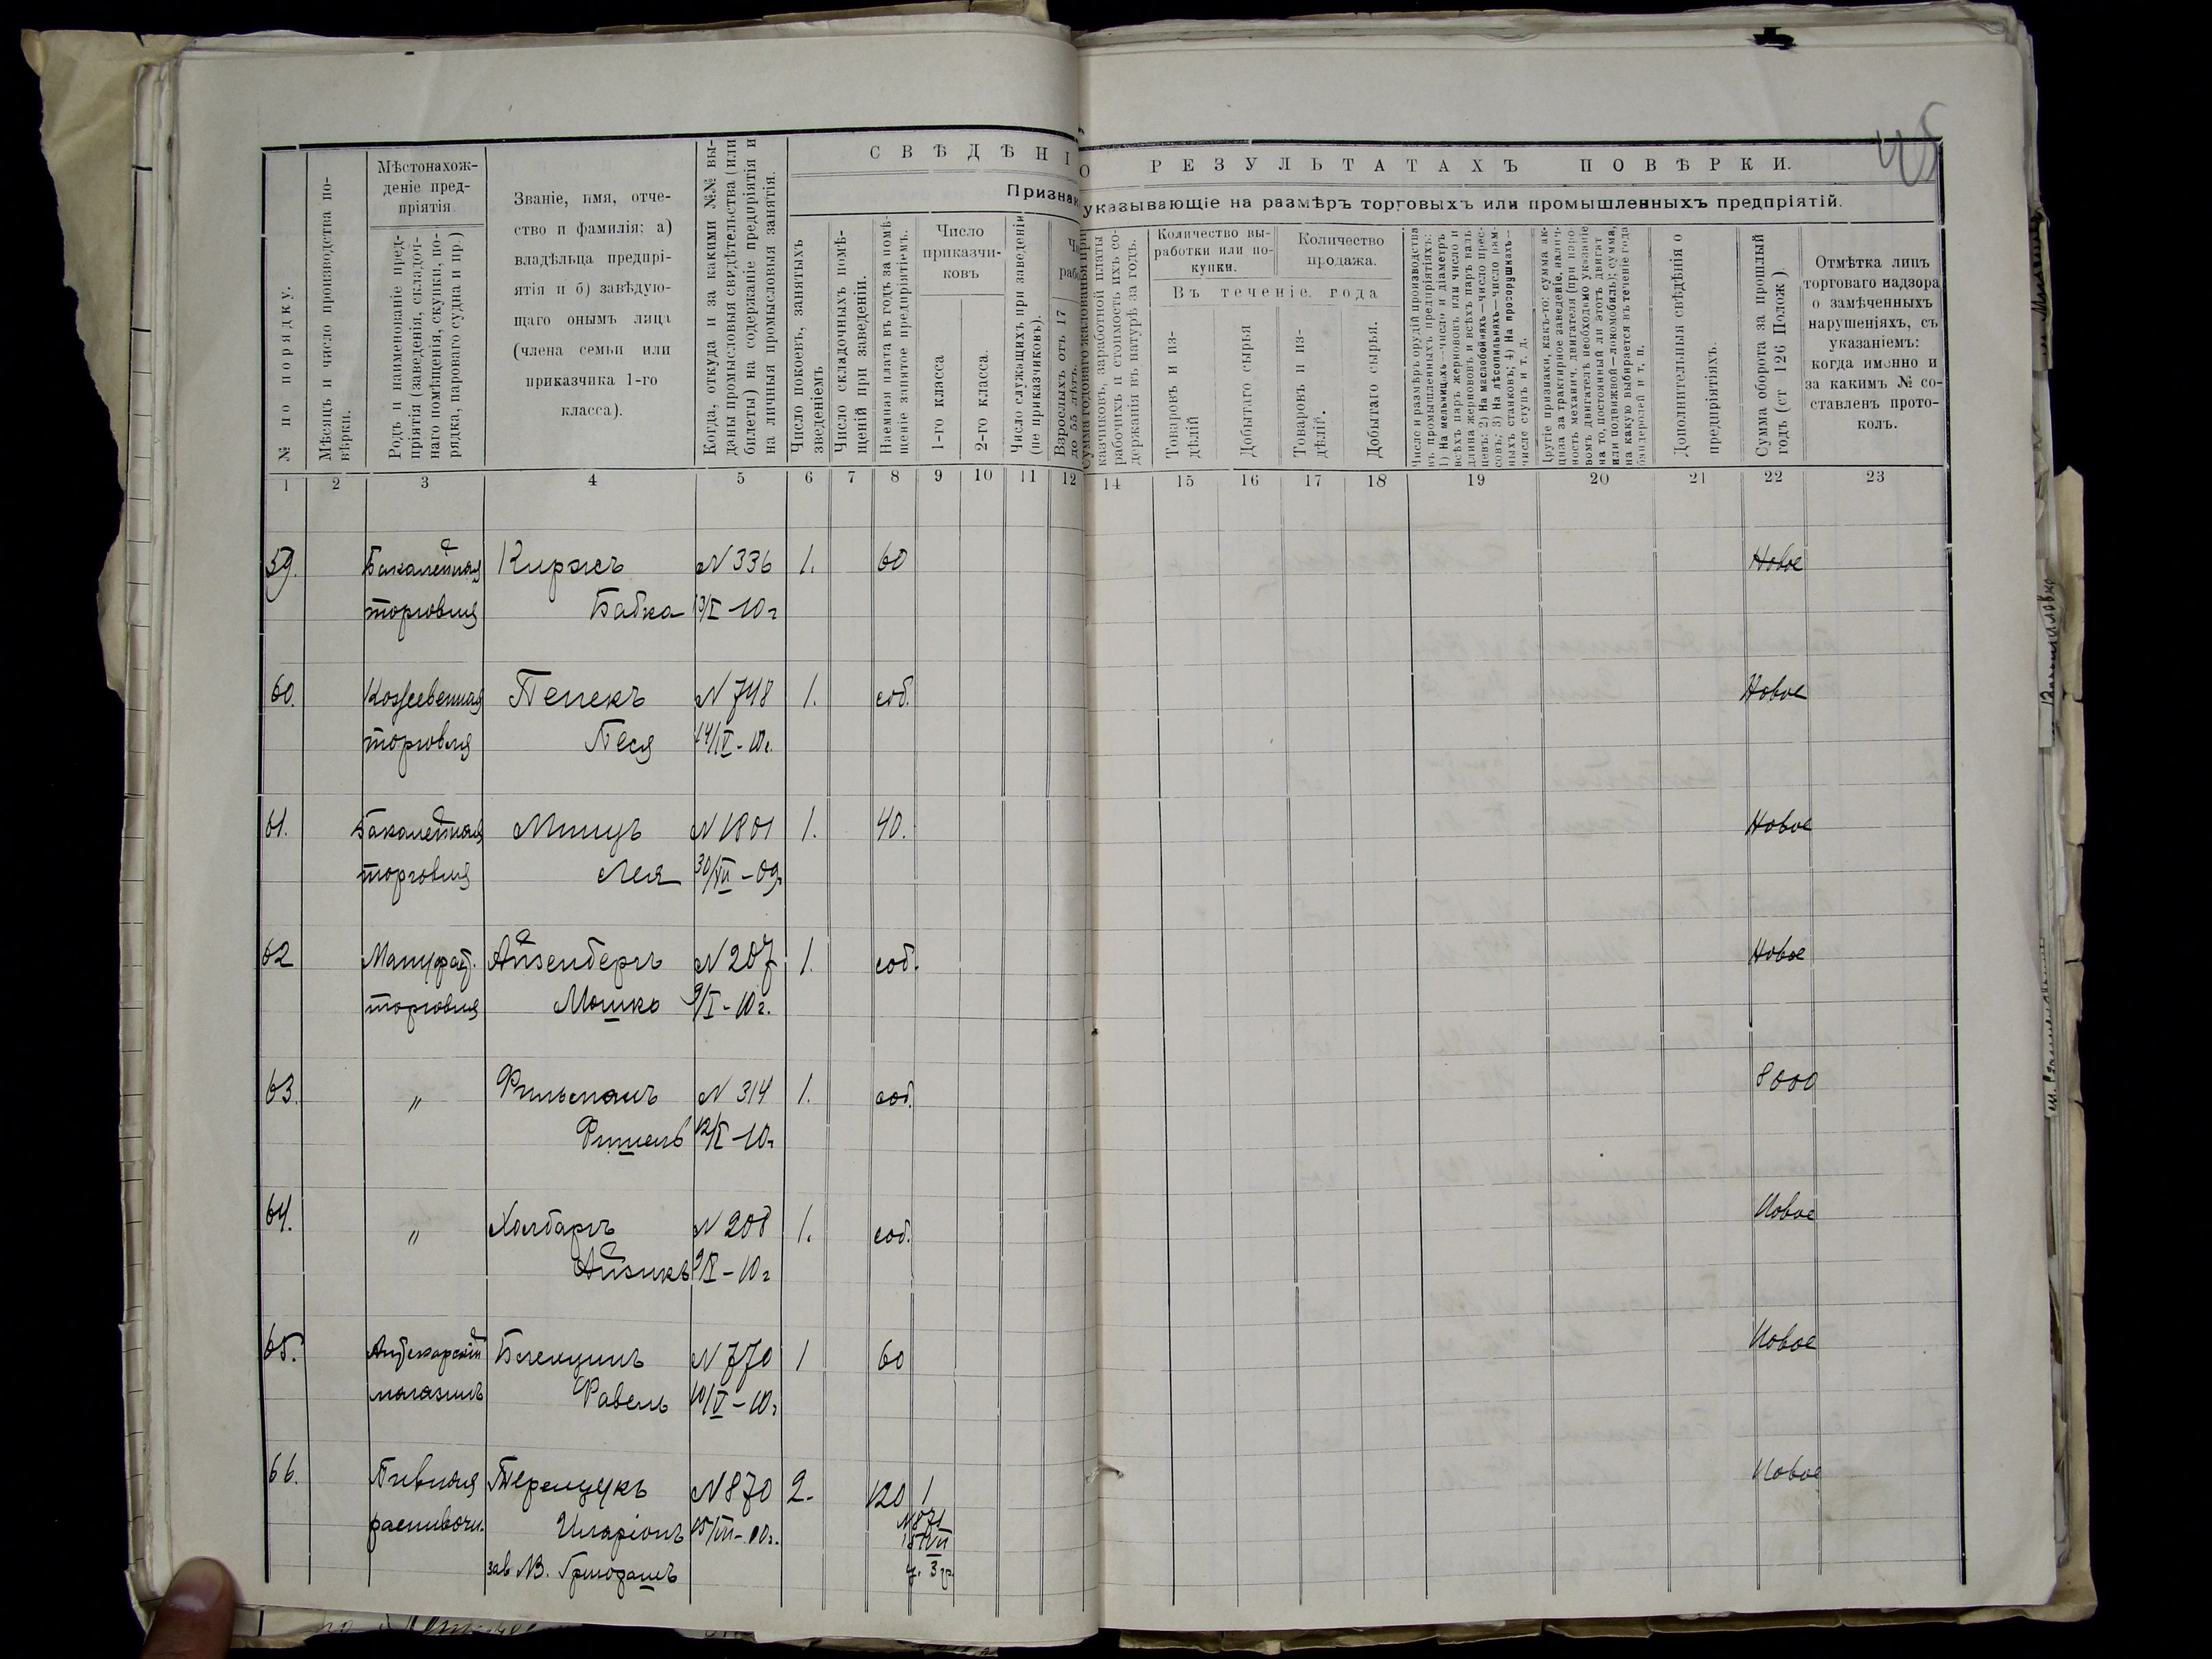 45
СВѢДѢНІ О РЕЗУЛЬТАТАХЪ ПОВѢРКИ.
Признак указывающіе на размѣръ торговыхъ или промышленныхъ предпріятій.
№ по порядку.
Мѣсяцъ и число производства по-
вѣрки.
Мѣстонахож-
деніе пред-
пріятія
Родъ и наименованіе пред-
пріятія (заведенія, складоч-
наго помѣщенія, скупки, по-
рядка, пароваго судна и пр.)
Званіе, имя, отче-
ство и фамилія: а)
владѣльца предпрі-
ятія и б) завѣдую-
щаго онымъ лица
(члена семьи или
приказчика 1-го
класса).
Когда, откуда и за какими №№ вы-
даны промысловыя свидѣтельства (или
билеты) на содержаніе предпріятія и
на личныя промысловыя занятія.
Число покоевъ, занятыхъ
зведеніемъ
Число складочныхъ помѣ-
щеній при заведеніи.
Наемная плата въ годъ за помѣ-
щеніе занятое предпріятіемъ.
Число
приказчи-
ковъ
1-го класса
2-го класса.
Число служащихъ при заведеніи
(не приказчиковъ).
Взрослыхъ отъ 17
до 55 лѣтъ.
Сумма годоваго жалованья при
казчиковъ, заработной платы
рабочихъ и стоимость ихъ со-
держанія въ натурѣ за годъ.
Количество вы-
работки или по-
купки.
Количество
продажа.
Въ теченіе года
Товаровъ и из-
дѣлій
Добытаго сырья
Товаровъ и из-
дѣлій.
Добытаго сырья.
Число и размѣръ орудій производства
въ промышленныхъ предпріятіяхъ:
1) На мельницахъ—число и діаметръ
всѣхъ паръ жернововъ или число и
длина жернововъ и всѣхъ паръ валь
цевъ; 2) На маслобойняхъ—число прес-
совъ; 3) На лѣсопильняхъ—число рам-
ныхъ станковъ; 4) На просорушкахъ—
число ступъ и т. д.
Другіе признаки, какъ-то: сумма ак-
циза за трактирное заведеніе, налич-
ность механич. двигателя (при паро-
вомъ двигателѣ необходимо указаніе
на то, постоянный ли этотъ двигат
или подвижной—локомобиль); сумма,
на какую выбирается въ теченіе года
бандеролей и т. п.
Дополнительныя свѣдѣнія о
предпріятіяхъ.
Сумма оборота за прошлый
годъ (ст 126 Полож.)
Отмѣтка лицъ
торговаго надзора
о замѣченныхъ
нарушеніяхъ, съ
указаніемъ:
когда именно и
за какимъ № со-
ставленъ прото-
колъ.
1 2 3 4 5 6 7 8 9 10 11 12 14 15 16 17 18 19 20 21 22 23
59. Бакалейная Киржъ N 336 1. 60 Новое
торговля Бабка 13/I-10г
60. Кожевенная Пепекъ N 748 1. соб. Новое
торговля Песя 14/IV-10г.
61. Бакалейная Минцъ N 1801 1. 40. Новое
торговля Лея 30/XII-09г
62 Мануфакт. Айзенбергъ N 207 1. соб. Новое
торговля Мошко 9/I-10г.
63. " N 314 1. соб. 8000
12/I-10г
64. " N 208 1. соб. Новое
Айзикъ 9/I-10г
65. Аптекарскій N 770 1 60 Новое
магазинъ 10/V-10г
66. Пивная Терещукъ N 870 2. 120 1 Новое
распивочн. Иларіонъ 15/VII-10г. N 871
15/VII
зав. 3 р